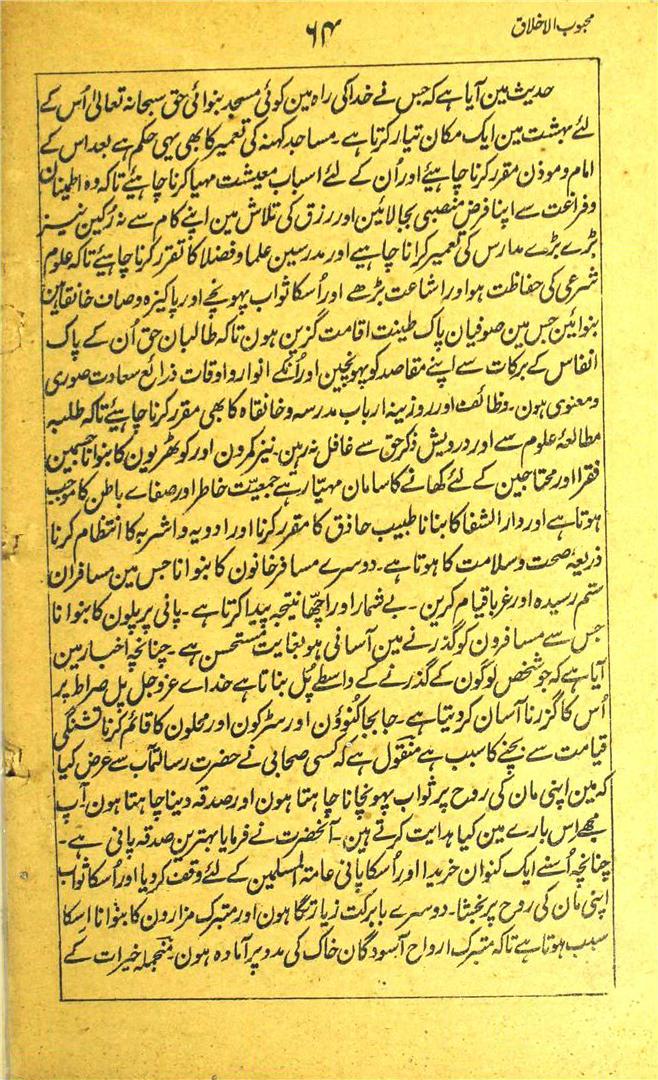 محبوب الاخلاق
۶۴
حدیث مین آیا ہے کہ جس نے خدا کی راہ مین کوئی مسجد بنوائی حق سبحانہ تعالیٰ اُس کے
لئے بہشت مین ایک مکان تیار کرتا ہے۔ مساجد کہنہ کی تعمیر کا بھی یہی حکم ہے بعد اس کے
امام و موذن مقرر کرنا چاہیئے اور اُن کے لئے اسباب معیشت مہیا کرنا چاہیئے تاکہ وہ اطمینان
و فراغت سے اپنا فرض منصبی بجا لائین اور رزق کی تلاش مین اپنے کام سے نہ رُکین نیز
بڑے بڑے مدارس کی تعمیر کرانا چاہیے اور مدرسین علما و فضلا کا تقرر کرنا چاہیے تاکہ علوم
شرعی کی حفاظت ہو اور اشاعت بڑھے اور اُسکا ثواب پہونچے اور پاکیزہ و صاف خانقاہین
بنوائین جس مین صوفیان پاک طینت اقامت گزین ہون تاکہ طالبان حق اُن کے پاک
انفاس کے برکات سے اپنے مقاصد کو پہونچین اور اُنکے انوار و اوقات ذرائع سعادت صوری
و معنوی ہون۔ وظائف اور روزینہ ارباب مدرسہ و خانقاہ کا بھی مقرر کرنا چاہیئے تاکہ طلبہ
مطالعۂ علوم سے اور درویش ذکر حق سے غافل نہ رہین۔ نیز کمرون اور کوٹھریون کا بنوانا جسمین
فقرا اور محتاجین کے لئے کھانے کا سامان مہیا رہے جمعیت خاطر اور صفاے باطن کا موجب
ہوتا ہے اور دار الشفا کا بنانا طبیب حاذق کا مقرر کرنا اور ادویہ و اشربہ کا انتظام کرنا
ذریعۂ صحت و سلامت کا ہوتا ہے۔ دوسرے مسافر خانون کا بنوانا جس مین مسافران
ستم رسیدہ اور غربا قیام کرین۔ بے شمار اور اچھا نتیجہ پیدا کرتا ہے۔ پانی پر پلون کا بنوانا
جس سے مسافرون کو گذرنے مین آسانی ہو بغایت مستحسن ہے۔ چنانچہ اخبار مین
آیا ہے کہ جو شخص لوگون کے گذرنے کے واسطے پُل بناتا ہے خداے عز وجل پل صراط پر
اُس کا گزرنا آسان کر دیتا ہے۔ جا بجا کنوؤن اور سڑکون اور محلون کا قائم کرنا تشنگی
قیامت سے بچنے کا سبب ہے منقول ہے کہ کسی صحابی نے حضرت رسالتمآب سے عرض کیا
کہ مین اپنی مان کی روح پر ثواب پہونچانا چاہتا ہون اور صدقہ دینا چاہتا ہون آپ
مجھے اس بارے مین کیا ہدایت کرتے ہین۔ آنحضرت نے فرمایا بہترین صدقہ پانی ہے۔
چنانچہ اُسنے ایک کنوان خریدا اور اُسکا پانی عامتہ المسلمین کے لئے وقف کر دیا اور اُسکا ثواب
اپنی مان کی روح پر بخشا۔ دوسرے بابرکت زیارتگاہون اور متبرک مزارون کا بنوانا اسکا
سبب ہوتا ہے تاکہ متبرک ارواح آسودگان خاک کی مدد پر آمادہ ہون۔ منجملہ خیرات کے